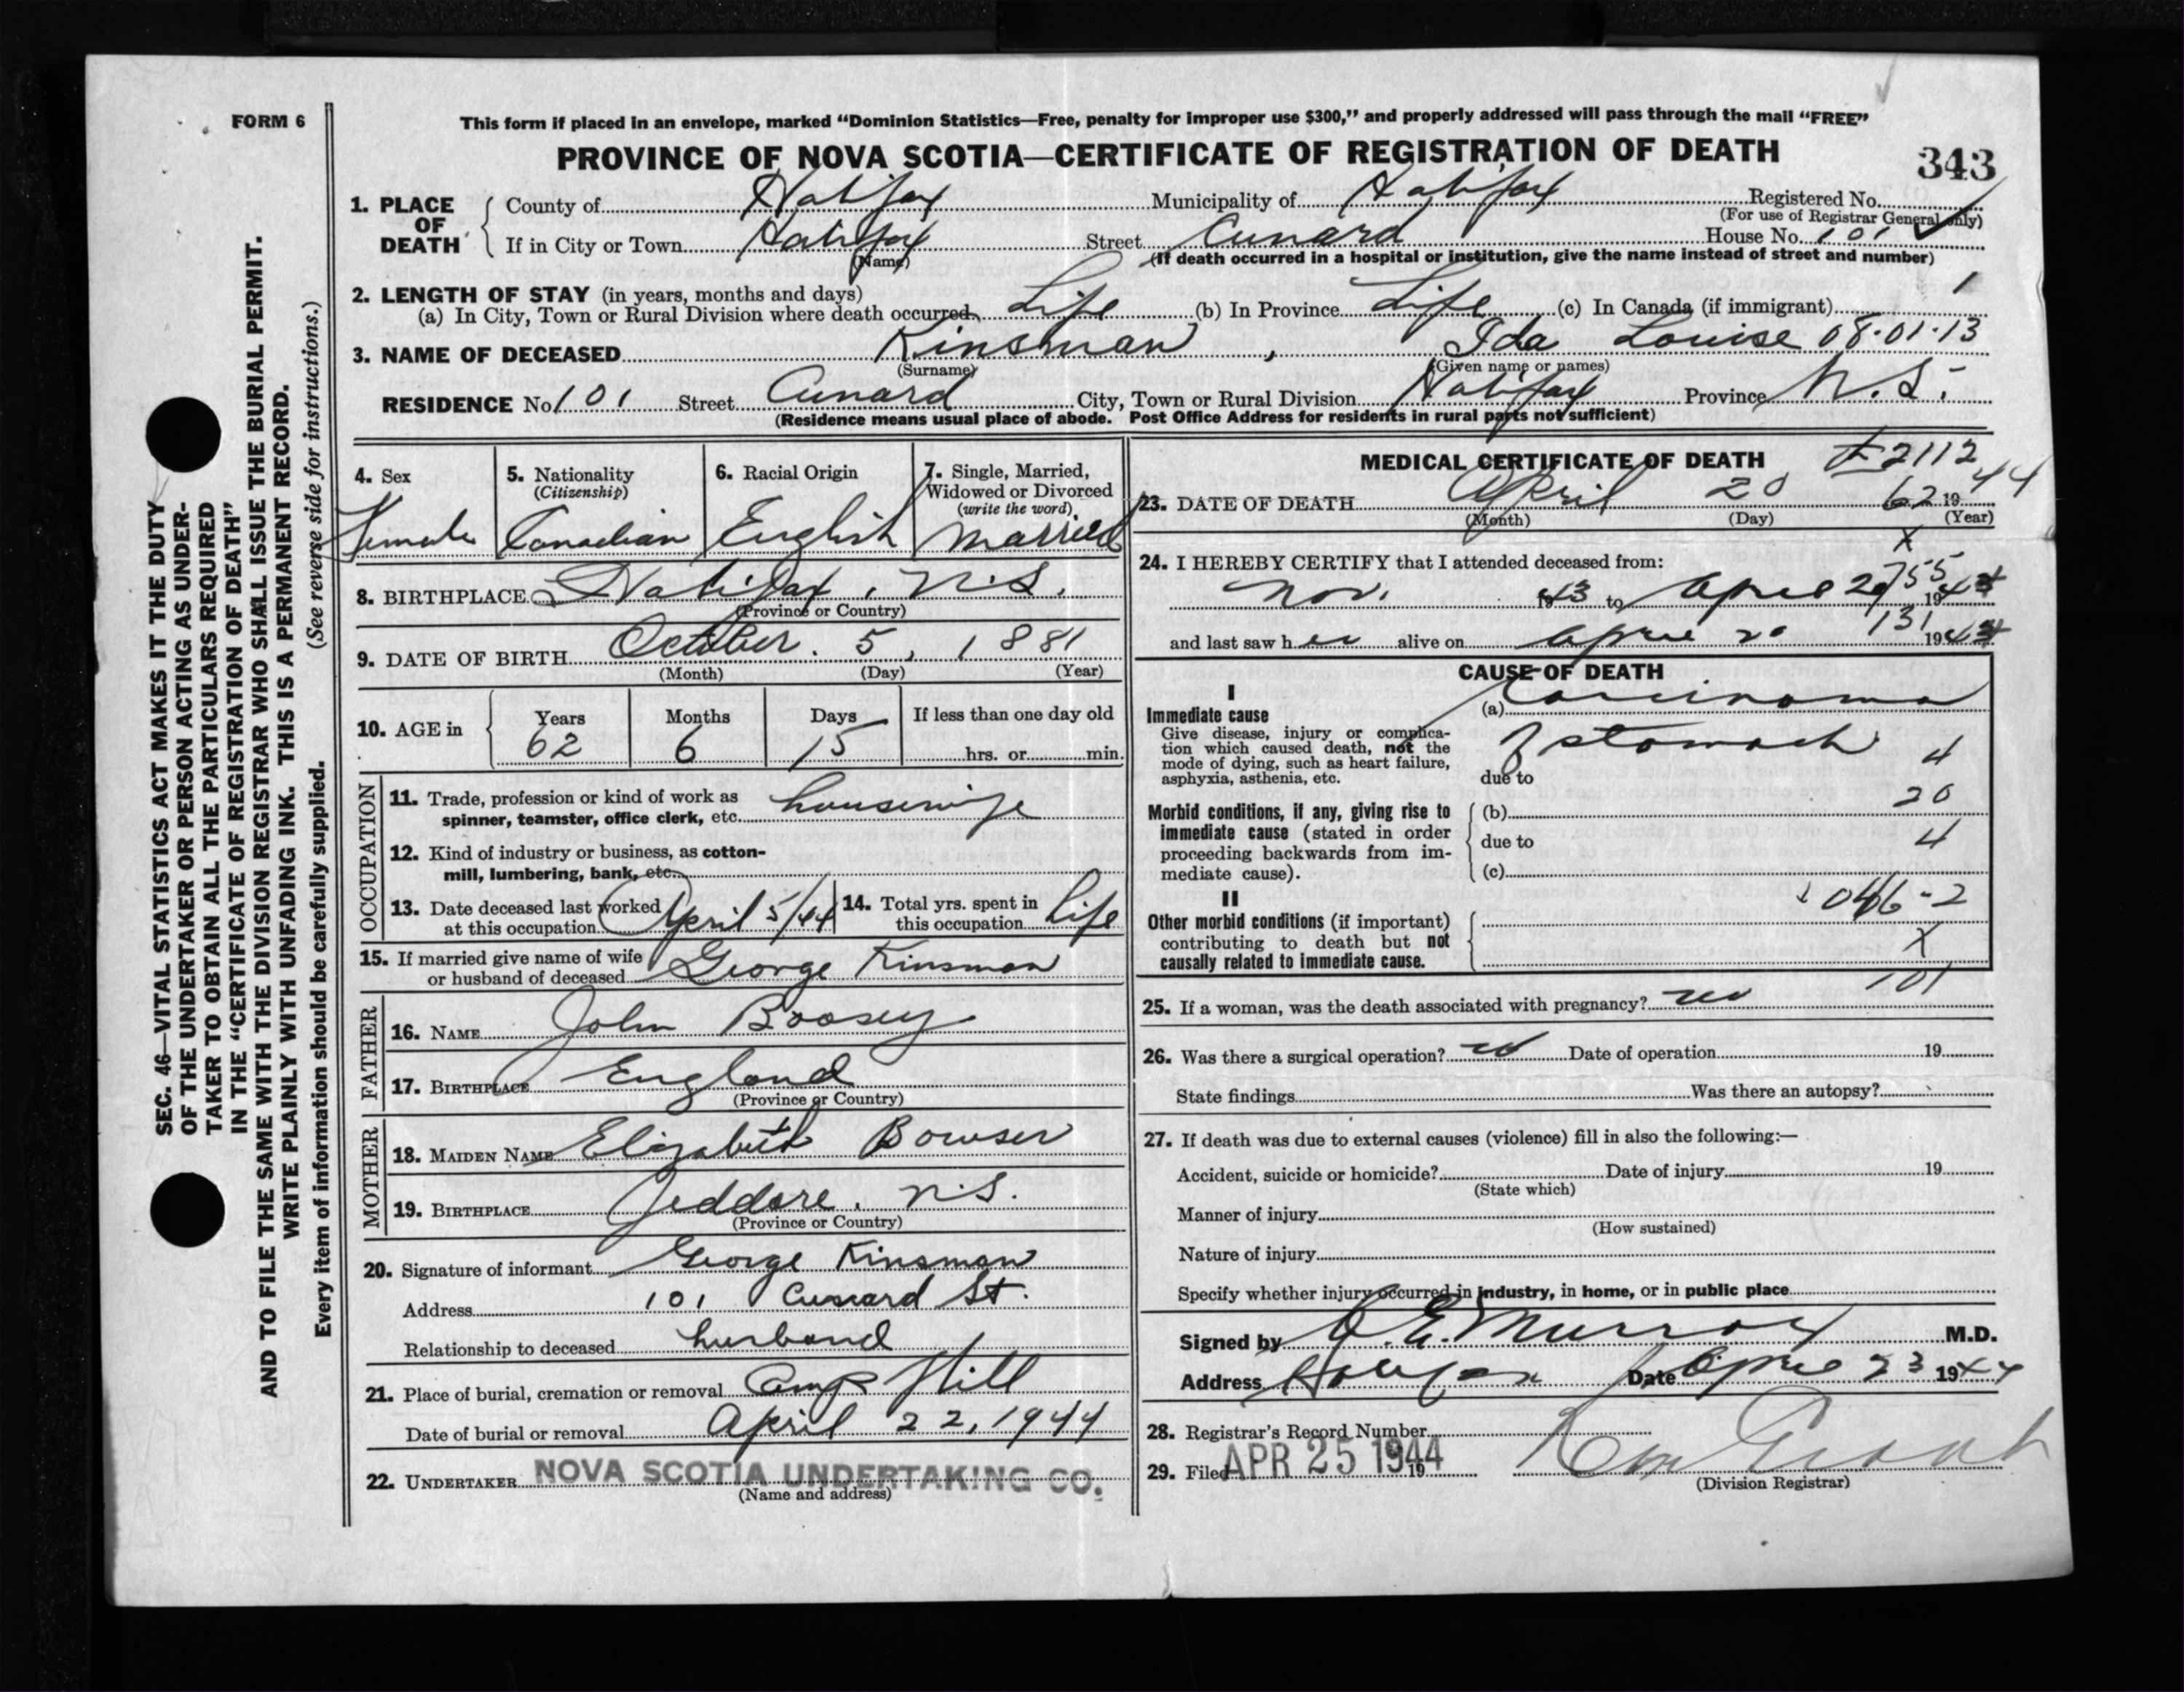 FORM 6
This form if placed in an envelope, marked “Dominion Statistics—Free, penalty for improper use $300,” and properly addressed will pass through the mail “FREE”
PROVINCE OF NOVA SCOTIA—CERTIFICATE OF REGISTRATION OF DEATH
343
1. PLACE OF DEATH
County of Halifax Municipality of Halifax Registered No.
(For use of Registrar General only)
If in City or Town Halifax Street Cunard House No. 101
(Name) (If death occurred in a hospital or institution, give the name instead of street and number)
2. LENGTH OF STAY (in years, months and days) 1
(a) In City, Town or Rural Division where death occurred Life (b) In Province Life (c) In Canada (if immigrant)
3. NAME OF DECEASED Kinsman , Ida Louise 08-01-13
(Surname) (Given name or names)
RESIDENCE No 101 Street Cunard City, Town or Rural Division Halifax Province N.S.
(Residence means usual place of abode. Post Office Address for residents in rural parts not sufficient)
4. Sex
Female
5. Nationality
(Citizenship)
Canadian
6. Racial Origin
English
7. Single, Married,
Widowed or Divorced
(write the word)
Married
8. BIRTHPLACE Halifax, N.S.
(Province or Country)
9. DATE OF BIRTH October. 5, 1881
(Month) (Day) (Year)
10. AGE in
Years Months Days If less than one day old
62 6 15 hrs. or min.
OCCUPATION
11. Trade, profession or kind of work as
spinner, teamster, office clerk, etc. housewife
12. Kind of industry or business, as cotton-
mill, lumbering, bank, etc.
13. Date deceased last worked
at this occupation April 5/44
14. Total yrs. spent in
this occupation Life
15. If married give name of wife
or husband of deceased George Kinsman
FATHER
16. NAME John Boosey
17. BIRTHPLACE England
(Province or Country)
MOTHER
18. MAIDEN NAME Elizabeth Bowser
19. BIRTHPLACE Jeddore, N.S.
(Province or Country)
20. Signature of informant George Kinsman
Address 101 Cunard St.
Relationship to deceased husband
21. Place of burial, cremation or removal Camp Hill
Date of burial or removal April 22, 1944
22. UNDERTAKER NOVA SCOTIA UNDERTAKING CO.
(Name and address)
MEDICAL CERTIFICATE OF DEATH
2112
23. DATE OF DEATH April 20 62 1944
(Month) (Day) (Year)
X
24. I HEREBY CERTIFY that I attended deceased from:
755
Nov. 1943 to April 20 1944
131
and last saw her alive on April 20 1944
CAUSE OF DEATH
I
Immediate cause
Give disease, injury or complica-
tion which caused death, not the
mode of dying, such as heart failure,
asphyxia, asthenia, etc.
(a) Carcinoma
of stomach
due to
4
Morbid conditions, if any, giving rise to
immediate cause (stated in order
proceeding backwards from im-
mediate cause).
(b)
20
due to
4
(c)
046-2
II
Other morbid conditions (if important)
contributing to death but not
causally related to immediate cause.
X
101
25. If a woman, was the death associated with pregnancy? no
26. Was there a surgical operation? no Date of operation 19
State findings Was there an autopsy?
27. If death was due to external causes (violence) fill in also the following:—
Accident, suicide or homicide? Date of injury 19
(State which)
Manner of injury
(How sustained)
Nature of injury
Specify whether injury occurred in industry, in home, or in public place
Signed by J. E. Murray M.D.
Address Halifax Date April 23 1944
28. Registrar's Record Number
29. Filed APR 25 1944 19
(Division Registrar)
SEC. 46—VITAL STATISTICS ACT MAKES IT THE DUTY
OF THE UNDERTAKER OR PERSON ACTING AS UNDER-
TAKER TO OBTAIN ALL THE PARTICULARS REQUIRED
IN THE “CERTIFICATE OF REGISTRATION OF DEATH”
AND TO FILE THE SAME WITH THE DIVISION REGISTRAR WHO SHALL ISSUE THE BURIAL PERMIT.
WRITE PLAINLY WITH UNFADING INK. THIS IS A PERMANENT RECORD.
Every item of information should be carefully supplied. (See reverse side for instructions.)